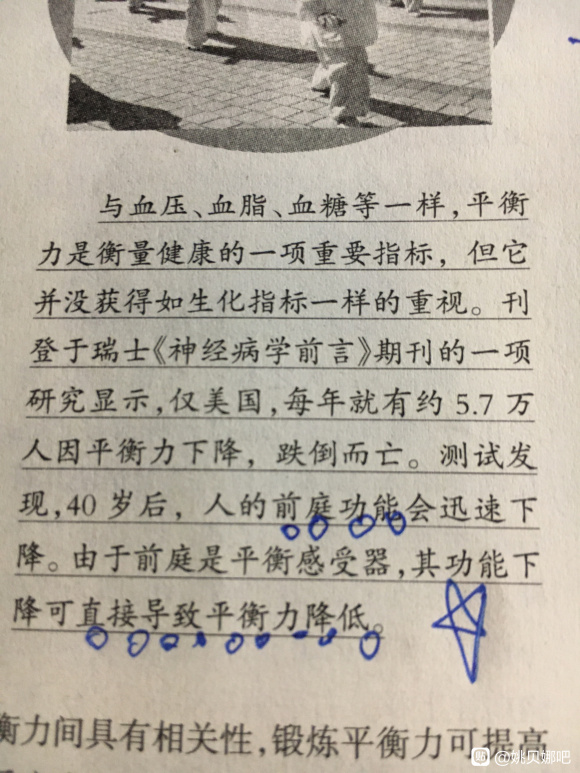 与血压、血脂、血糖等一样,平衡
力是衡量健康的一项重要指标，但它
并没获得如生化指标一样的重视。刊
登于瑞士《神经病学前言》期刊的一项
研究显示,仅美国,每年就有约 5.7 万
人因平衡力下降，跌倒而亡。测试发
现,40 岁后，人的前庭功能会迅速下
降。由于前庭是平衡感受器,其功能下
降可直接导致平衡力降低。
衡力间具有相关性,锻炼平衡力可提高
@姚贝娜吧